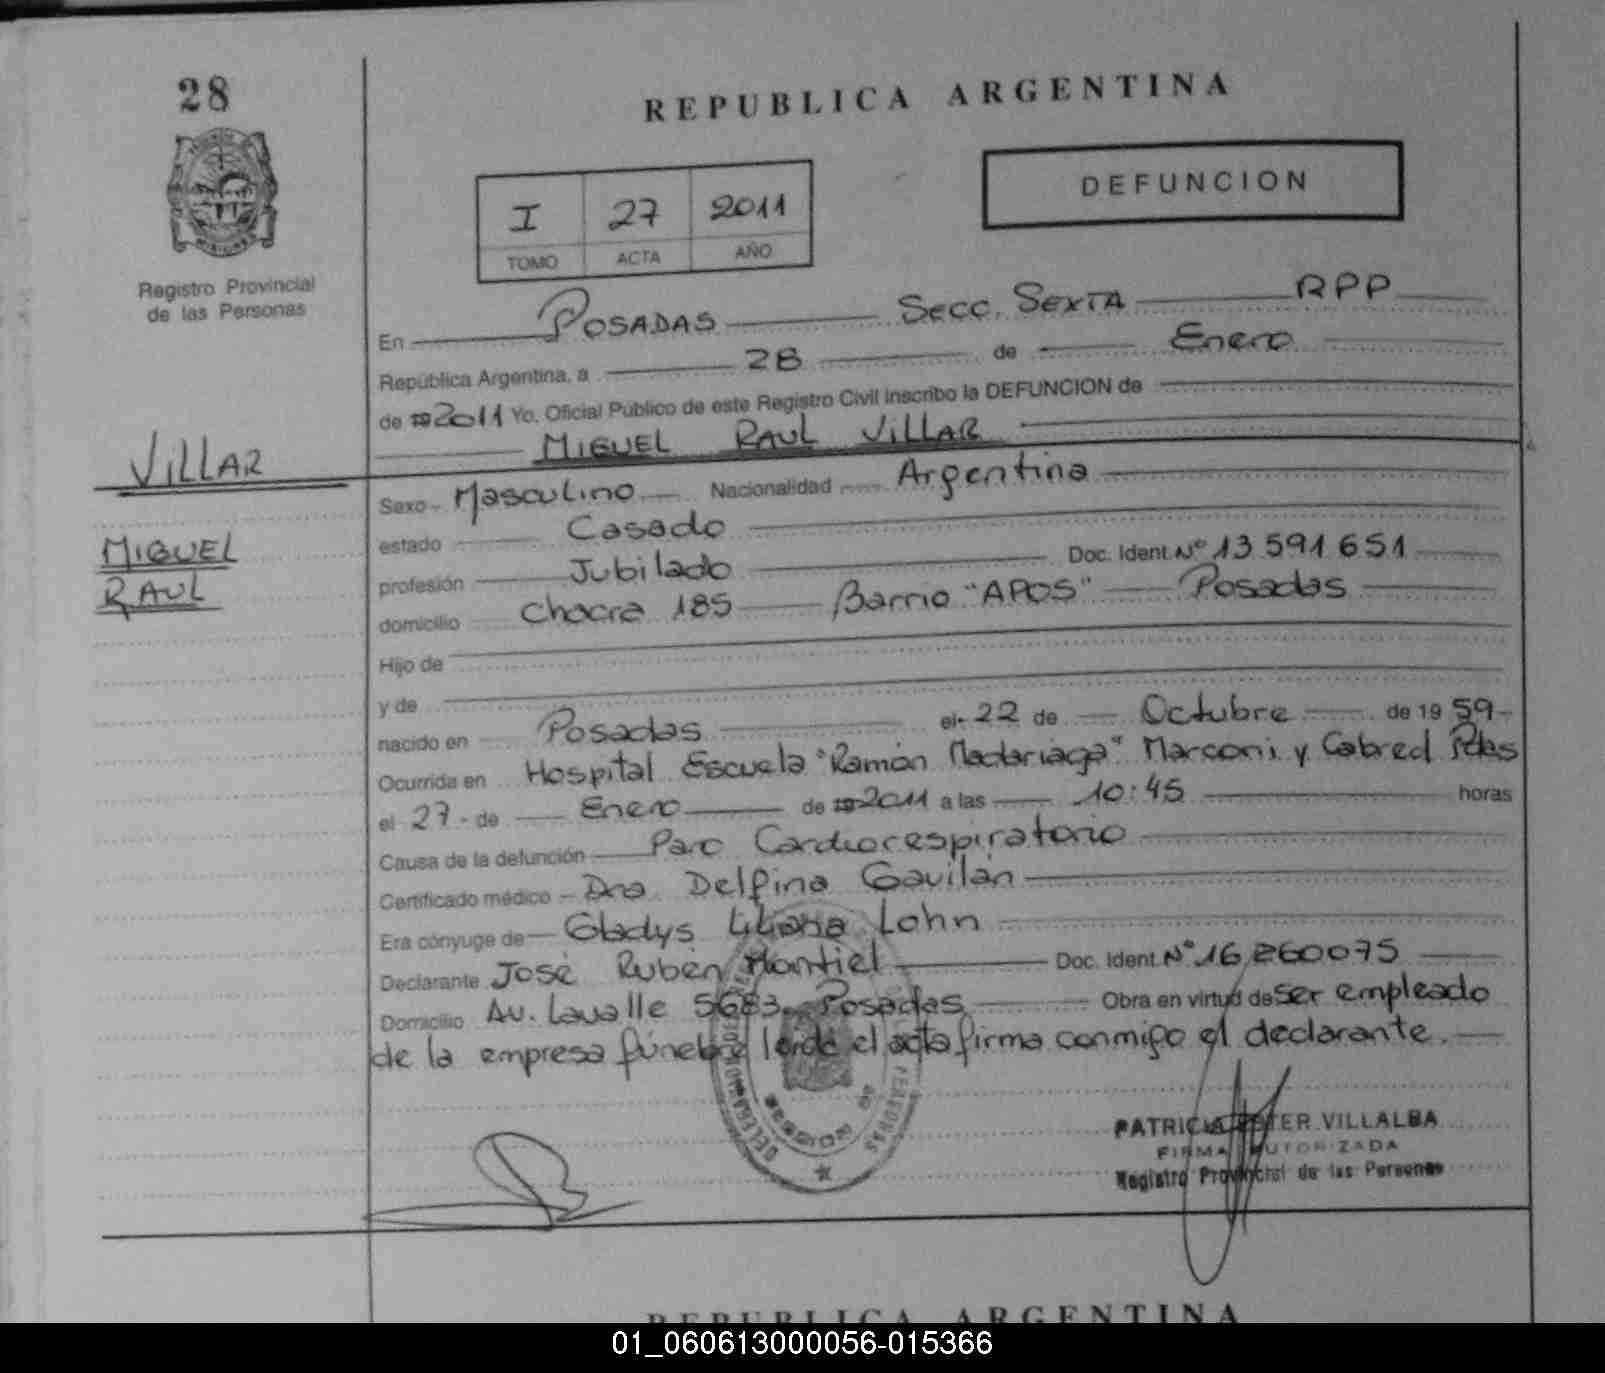 28
REPUBLICA ARGENTINA
DEFUNCION
I 27 2011
TOMO ACTA AÑO
Registro Provincial
de las Personas
En POSADAS Secc. SEXTA RPP
República Argentina, a 28 de Enero
de 19 2011 Yo. Oficial Público de este Registro Civil inscribo la DEFUNCION de
MIGUEL RAUL VILLAR
VILLAR
MIGUEL
RAUL
Sexo Masculino Nacionalidad Argentina
estado Casado
profesión Jubilado Doc. Ident. Nº 13.591.651
domicilio Chacra 185 Barrio "APOS" Posadas
Hijo de
y de
nacido en Posadas el 22 de Octubre de 19 59
Ocurrida en Hospital Escuela "Ramón Madariaga" Marconi y Cabred Pdas
el 27 de Enero de 19 2011 a las 10:45 horas
Causa de la defunción Paro Cardiorespiratorio
Certificado médico Dra. Delfina Gavilán
Era cónyuge de Gladys Liliana Lohn
Declarante José Rubén Montiel Doc. Ident. Nº 16.260075
Domicilio Av. Lavalle 5683 Posadas Obra en virtud de ser empleado
de la empresa fúnebre leída el acta firma conmigo el declarante.
PATRICIA ESTER VILLALBA
FIRMA AUTORIZADA
Registro Provincial de las Personas
REPUBLICA ARGENTINA
01_060613000056-015366